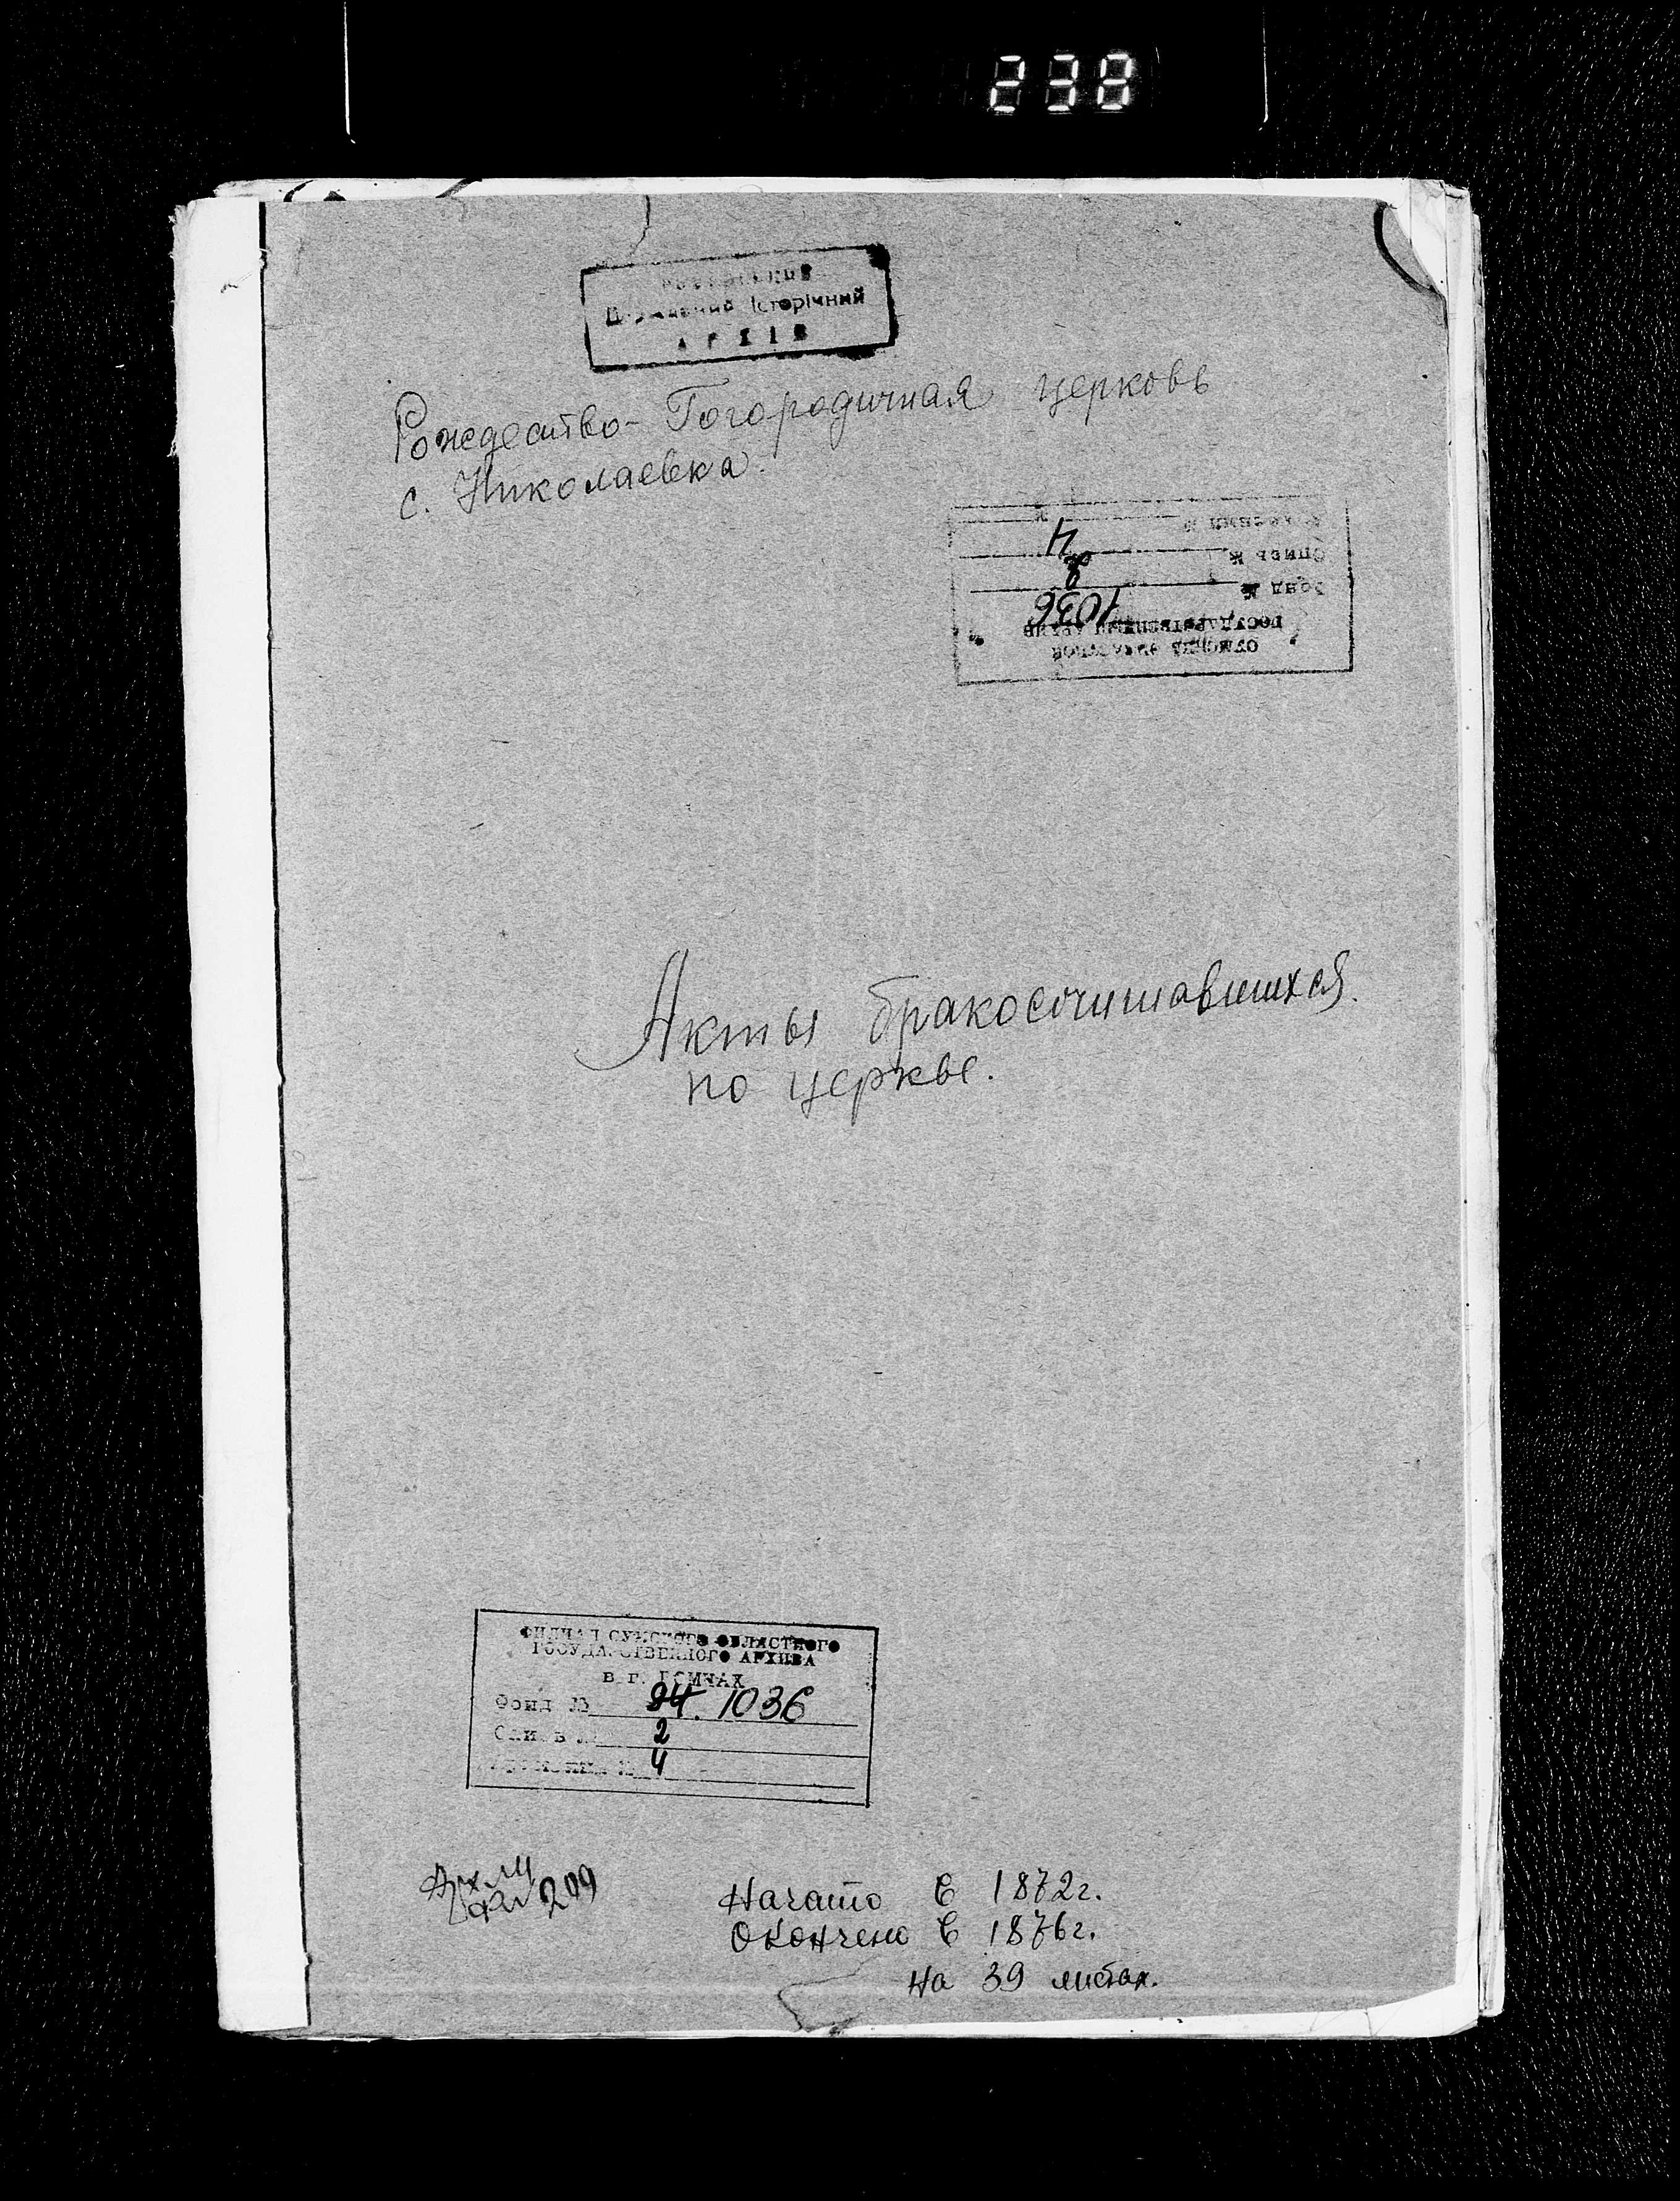 238
Державний Історічний
АРХІВ
Рождество-Богородичная церковь
с. Николаевка.
4
2
Опись №
Фонд №
1036
ГОСУДАРСТВЕННЫЙ АРХИВ
СУМСКОЙ ОБЛАСТНОЙ
Акты бракосочитавшихся
по церкве.
ФИЛИАЛ СУМСКОГО ОБЛАСТНОГО
ГОСУДАРСТВЕННОГО АРХИВА
В Г. РОМНАХ
Фонд № 94. 1036
Опись № 2
4
209
Начато в 1872г.
Окончено в 1876г.
на 39 листах.